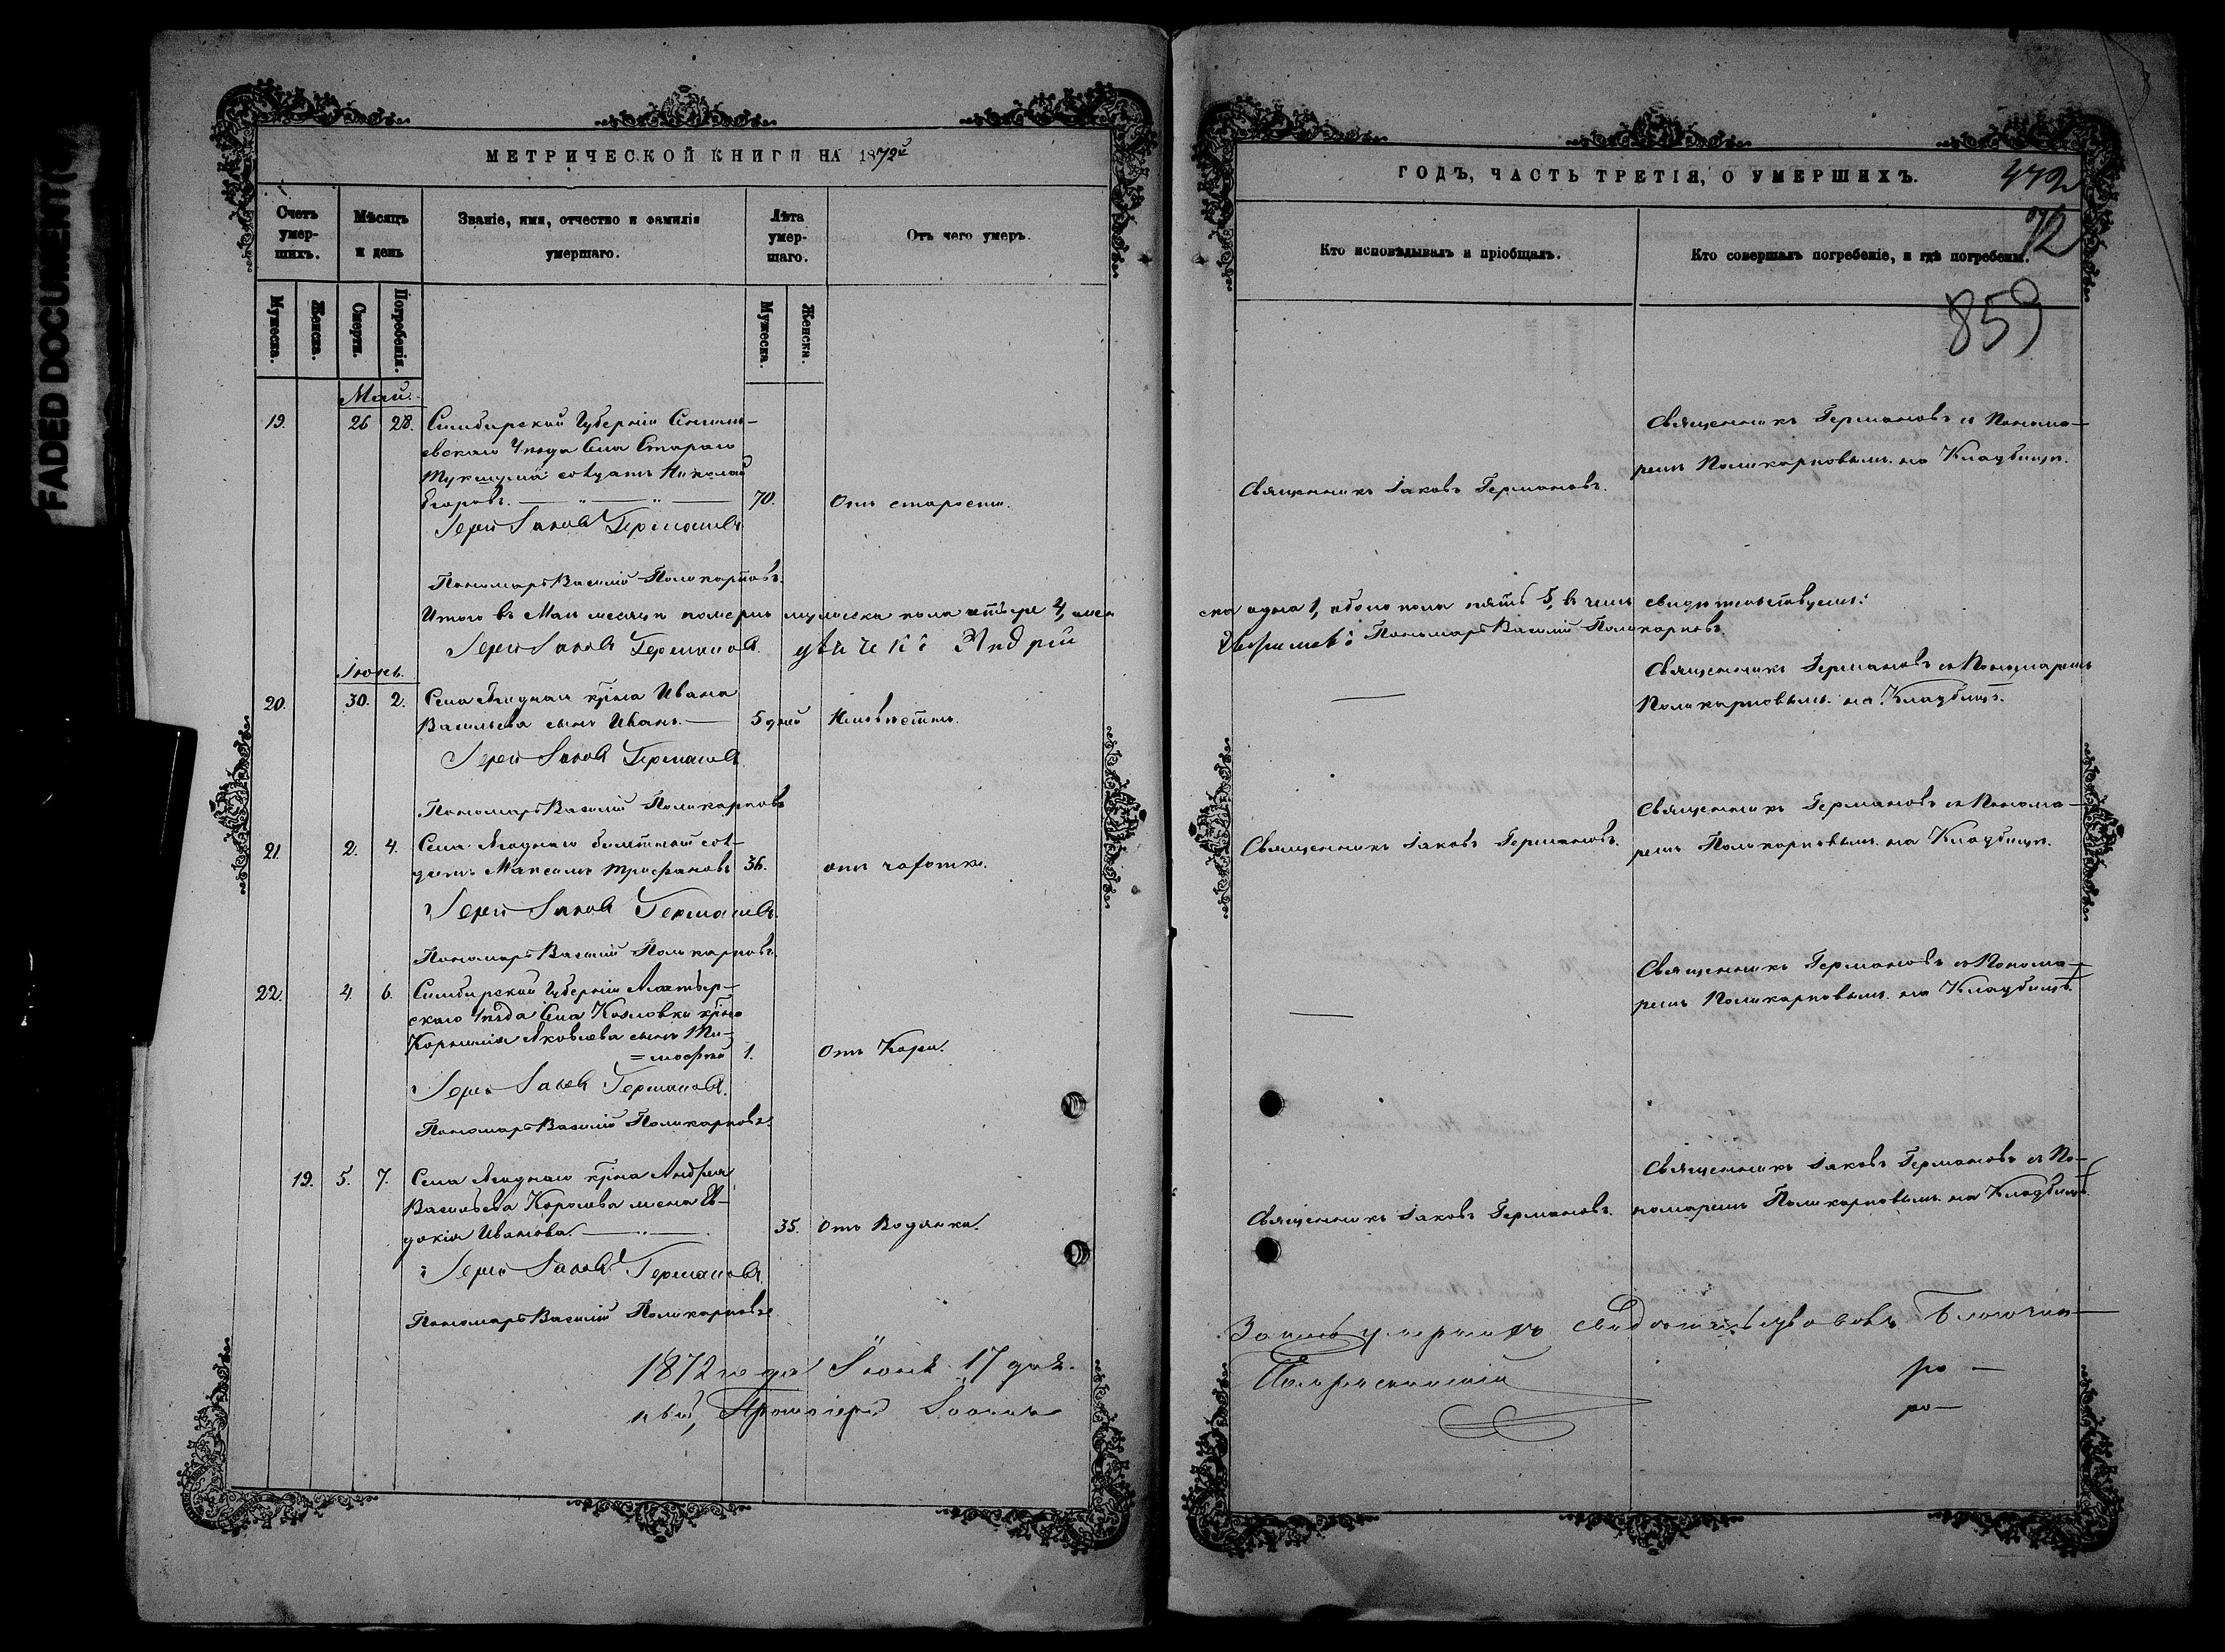 FADED DOCUMENT(
МЕТРИЧЕСКОЙ КНИГИ НА 1872й
Счетъ умер-шихъ.
Мѣсяцъ и день
Званіе, имя, отчество и фамилія умершаго.
Лѣта умер-шаго.
Отъ чего умеръ.
Мужеска.
Женска.
Смерти.
Погребенія.
Мужеска.
Женска.
Май.
19. 26 28. Симбирской Губерніи
евскаго Уѣзда Села Стараго
солдатъ Николай
Егоровъ. 70. Отъ старости.
Іерей Іаковъ Германовъ
Пономарь Василій Поликарповъ.
Итого въ Маѣ месяцѣ померло мужеска пола четыре 4, жен
Іерей Іаковъ Германовъ. Андрей
Іюнь.
20. 30. 2. Села Ягоднаго крѣна Ивана
Васильева сынъ Иванъ. 5 дней Неизвѣстно.
Іерей Іаковъ Германовъ
Пономарь Василій Поликарповъ
21. 2. 4. Села Ягоднаго билетный сол-
датъ Максимъ Трофимовъ 36. отъ чахотки.
Іерей Іаковъ Германовъ.
Пономарь Василій Поликарповъ.
22. 4. 6. Симбирской Губерніи Алатыр-
скаго Уѣзда Села Козловки крѣна
Корнилія Яковлева сынъ Ти-
=мофей 1. Отъ Кори.
Іерей Іаковъ Германовъ.
Пономарь Василій Поликарповъ.
19. 5. 7. Села Ягоднаго крѣна Андрея
Васильева Королева жена Ев-
докія Иванова. 35. Отъ Водянки.
Іерей Іаковъ Германовъ.
Пономарь Василій Поликарповъ
1872 года Іюня 17 дня.
Протоіерей Іоаннъ
ГОДЪ, ЧАСТЬ ТРЕТІЯ, О УМЕРШИХЪ.
472
72
Кто исповѣдывалъ и пріобщалъ.
Кто совершалъ погребеніе, и гдѣ погребены.
859
Священникъ Германовъ съ Понома-
ремъ Поликарповымъ на Кладбищѣ.
Священникъ Іаковъ Германовъ.
ска одна 1, обоего пола пять 5, въ чемъ свидѣтельствуемъ:
Пономарь Василій Поликарповъ.
Священникъ Германовъ съ Пономаремъ
Поликарповымъ на Кладбищѣ.
Священникъ Германовъ съ Понома-
Священникъ Іаковъ Германовъ. ремъ Поликарповымъ на Кладбищѣ.
Священникъ Германовъ съ Понома-
ремъ Поликарповымъ на Кладбищѣ.
Священникъ Іаковъ Германовъ съ По-
Священникъ Іаковъ Германовъ. номаремъ Поликарповымъ на Кладбищѣ.
умершихъ свидѣтельствовалъ Благочин-